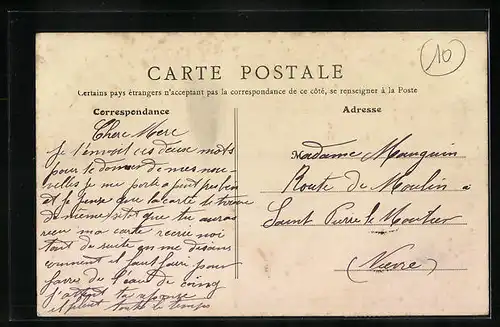 10
CARTE POSTALE
Certains pays étrangers n'acceptant pas la correspondance de ce côté, se renseigner à la Poste
Correspondance
Adresse
Chere Mere
Je t'envoit ces deux mots
pour te donner de mes nou-
velles je me porte a peut pres bien
et je pense que la carte te trouve
de meme sitot que tu auras
recu ma carte recrie moi
tout de suite en me disant
comment il faut faire pour
faire de l'eau de coing
J'attent ta reponse
il pleut toute le temps
Madame Mauguin
Route de Moulin à
Saint Pierre le Moutier
(Nievre)